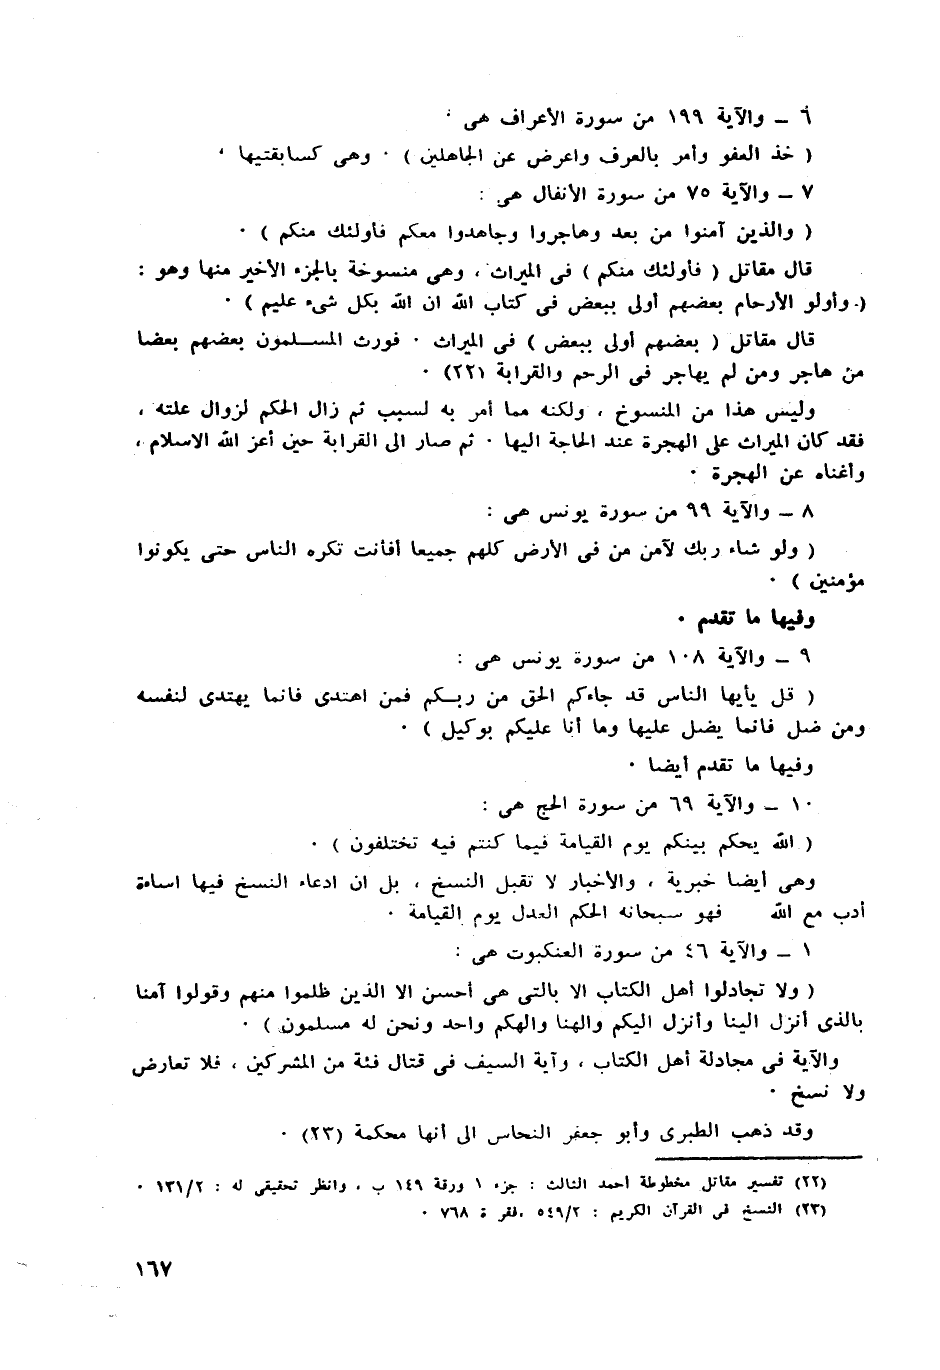 ٦ ــ والآية ١٩٩ من سورة الأعراف هى :
( خذ العفو وأمر بالعرف واعرض عن الجاهلين ) ٠ وهى كسابقتيها ٠
٧ ــ والآية ٧٥ من سورة الأنفال هى :
( والذين آمنوا من بعد وهاجروا وجاهدوا معكم فأولئك منكم ) ٠
قال مقاتل ( فأولئك منكم ) فى الميراث ، وهى منسوخة بالجزء الأخير منها وهو :
( وأولو الأرحام بعضهم أولى ببعض فى كتاب الله ان الله بكل شىء عليم ) ٠
قال مقاتل ( بعضهم أولى ببعض ) فى الميراث ٠ فورث المسلمون بعضهم بعضا
من هاجر ومن لم يهاجر فى الرحم والقرابة (٢٢) ٠
وليس هذا من المنسوخ ، ولكنه مما أمر به لسبب ثم زال الحكم لزوال علته ،
فقد كان الميراث على الهجرة عند الحاجة اليها ٠ ثم صار الى القرابة حين أعز الله الاسلام ،
وأغناه عن الهجرة ٠
٨ ــ والآية ٩٩ من سورة يونس هى :
( ولو شاء ربك لآمن من فى الأرض كلهم جميعا أفأنت تكره الناس حتى يكونوا
مؤمنين ) ٠
وفيها ما تقدم ٠
٩ ــ والآية ١٠٨ من سورة يونس هى :
( قل يأيها الناس قد جاءكم الحق من ربكم فمن اهتدى فانما يهتدى لنفسه
ومن ضل فانما يضل عليها وما أنا عليكم بوكيل ) ٠
وفيها ما تقدم أيضا ٠
١٠ ــ والآية ٦٩ من سورة الحج هى :
( الله يحكم بينكم يوم القيامة فيما كنتم فيه تختلفون ) ٠
وهى أيضا خبرية ، والأخبار لا تقبل النسخ ، بل ان ادعاء النسخ فيها اساءة
أدب مع الله فهو سبحانه الحكم العدل يوم القيامة ٠
١ ــ والآية ٤٦ من سورة العنكبوت هى :
( ولا تجادلوا أهل الكتاب الا بالتى هى أحسن الا الذين ظلموا منهم وقولوا آمنا
بالذى أنزل الينا وأنزل اليكم والهنا والهكم واحد ونحن له مسلمون ) ٠
والآية فى مجادلة أهل الكتاب ، وآية السيف فى قتال فئة من المشركين ، فلا تعارض
ولا نسخ ٠
وقد ذهب الطبرى وأبو جعفر النحاس الى أنها محكمة (٢٣) ٠
(٢٢) تفسير مقاتل مخطوطة أحمد الثالث : جزء ١ ورقة ١٤٩ ب ، وانظر تحقيقى له : ١٣١/٢ ٠
(٢٣) النسخ فى القرآن الكريم : ٥٤٩/٢ ،فقر ة ٧٦٨ ٠
١٦٧